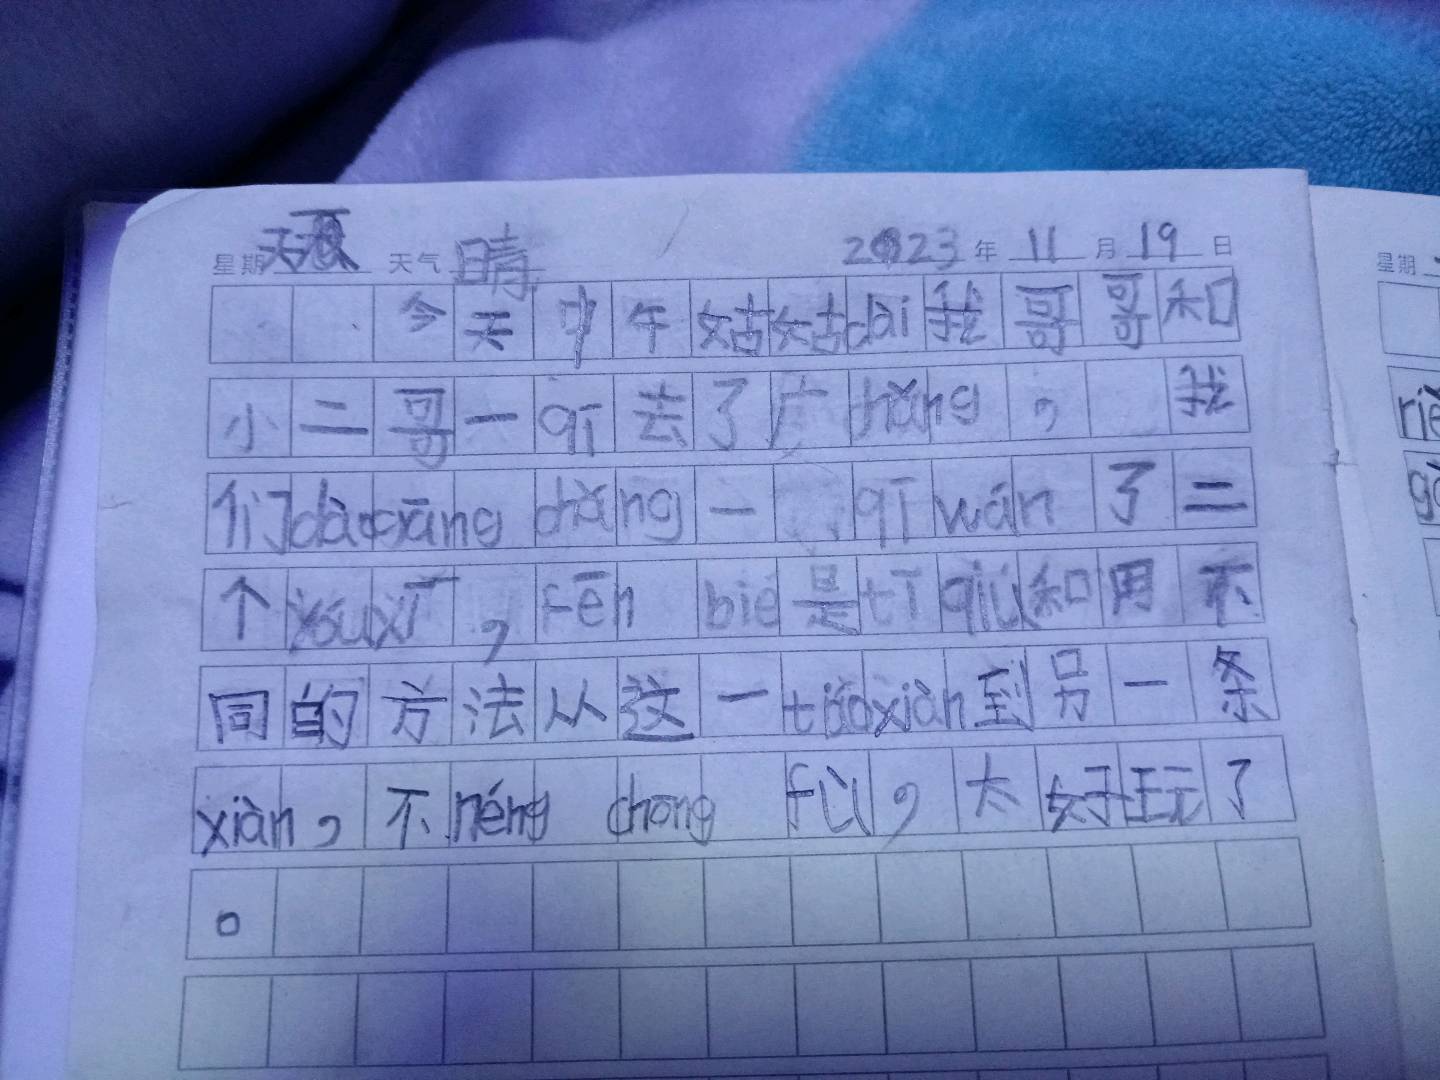 星期天 天气晴 2023年11月19日
今天中午姑姑dài我哥哥和
小二哥一qǐ去了广chǎng，我
们dàoguǎng chǎng一qǐ wán了二
个yóuxì，fēn bié是tī qiú和用不
同的方法从这一tiáoxiàn到另一条
xiàn，不néng chóng fù，太好玩了
。
星期